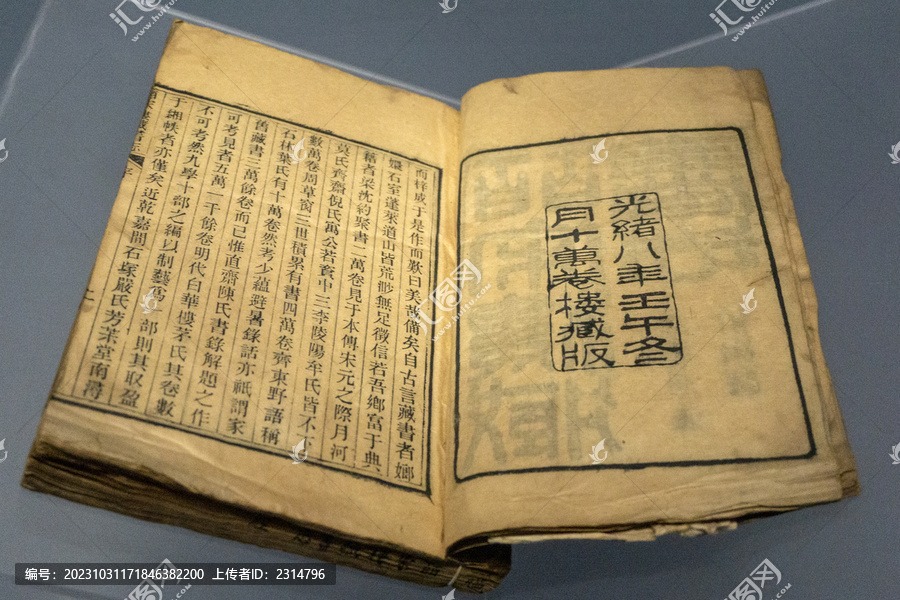 光緒八年壬午冬
月十萬卷樓藏版
而梓成于是作而歎曰美哉備矣自古言藏書者嫏
嬛石室蓬萊道山皆荒渺無足徵信若吾鄉富于典
籍者梁沈約聚書二萬卷見于本傳宋元之際月河
莫氏齊齋倪氏寓公若資中三李陵陽牟氏皆不下
數萬卷周草窗三世積累有書四萬卷齊東野語稱
石林葉氏有十萬卷然考少蘊避暑錄話亦祇謂家
舊藏書三萬餘卷而已惟直齋陳氏書錄解題之作
可考見者五萬一千餘卷明代白華樓茅氏其卷數
不可考然九學十部之編以制藝為一部則其取盈
于緗帙者亦僅矣近乾嘉間石塚嚴氏芳茮堂南潯
编号：20231031171846382200 上传者ID：2314796